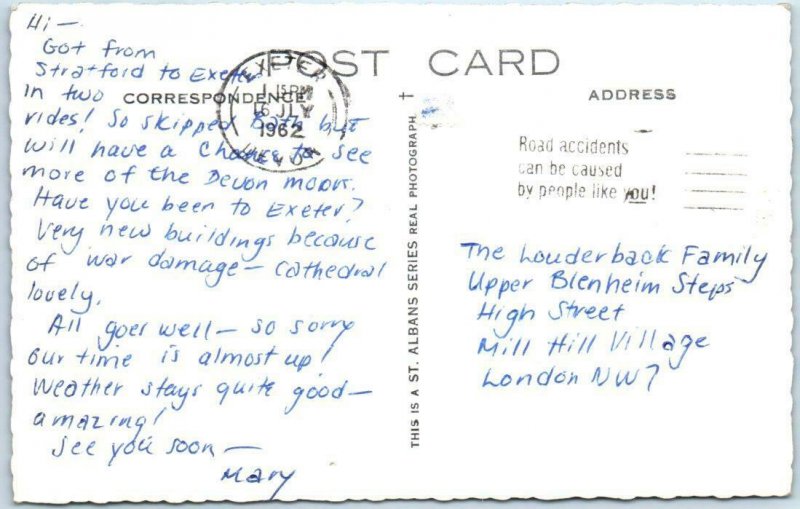 Hi —
Got from
Stratford to Exeter
in two
rides! So skipped Bath but
will have a chance to see
more of the Devon moors.
Have you been to Exeter?
Very new buildings because
of war damage — cathedral
lovely.
All goes well — so sorry
our time is almost up!
Weather stays quite good —
amazing!
See you soon —
Mary
POST CARD
CORRESPONDENCE
ADDRESS
EXETER
1 15 PM
16 JLY
1962
DEVON
Road accidents
can be caused
by people like you!
THIS IS A ST. ALBANS SERIES REAL PHOTOGRAPH
The Louderback Family
Upper Blenheim Steps
High Street
Mill Hill Village
London NW7